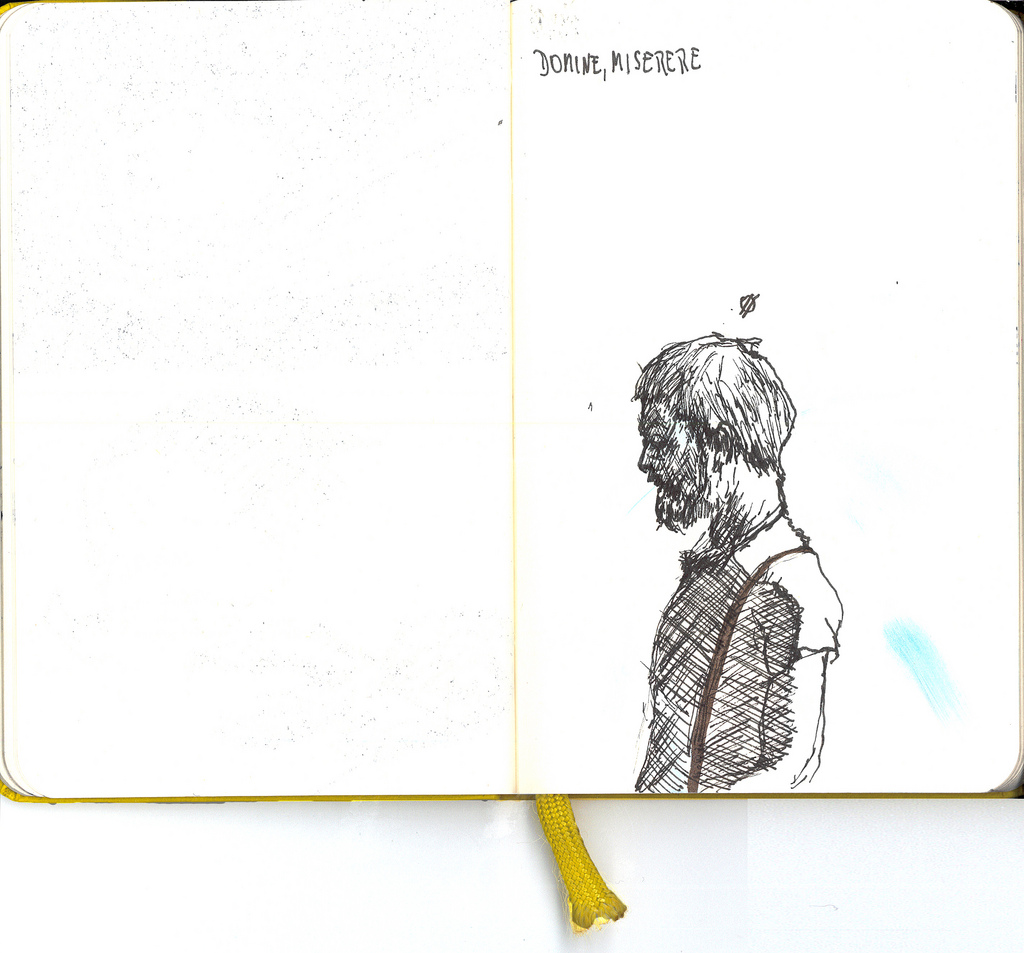 DOMINE, MISERERE